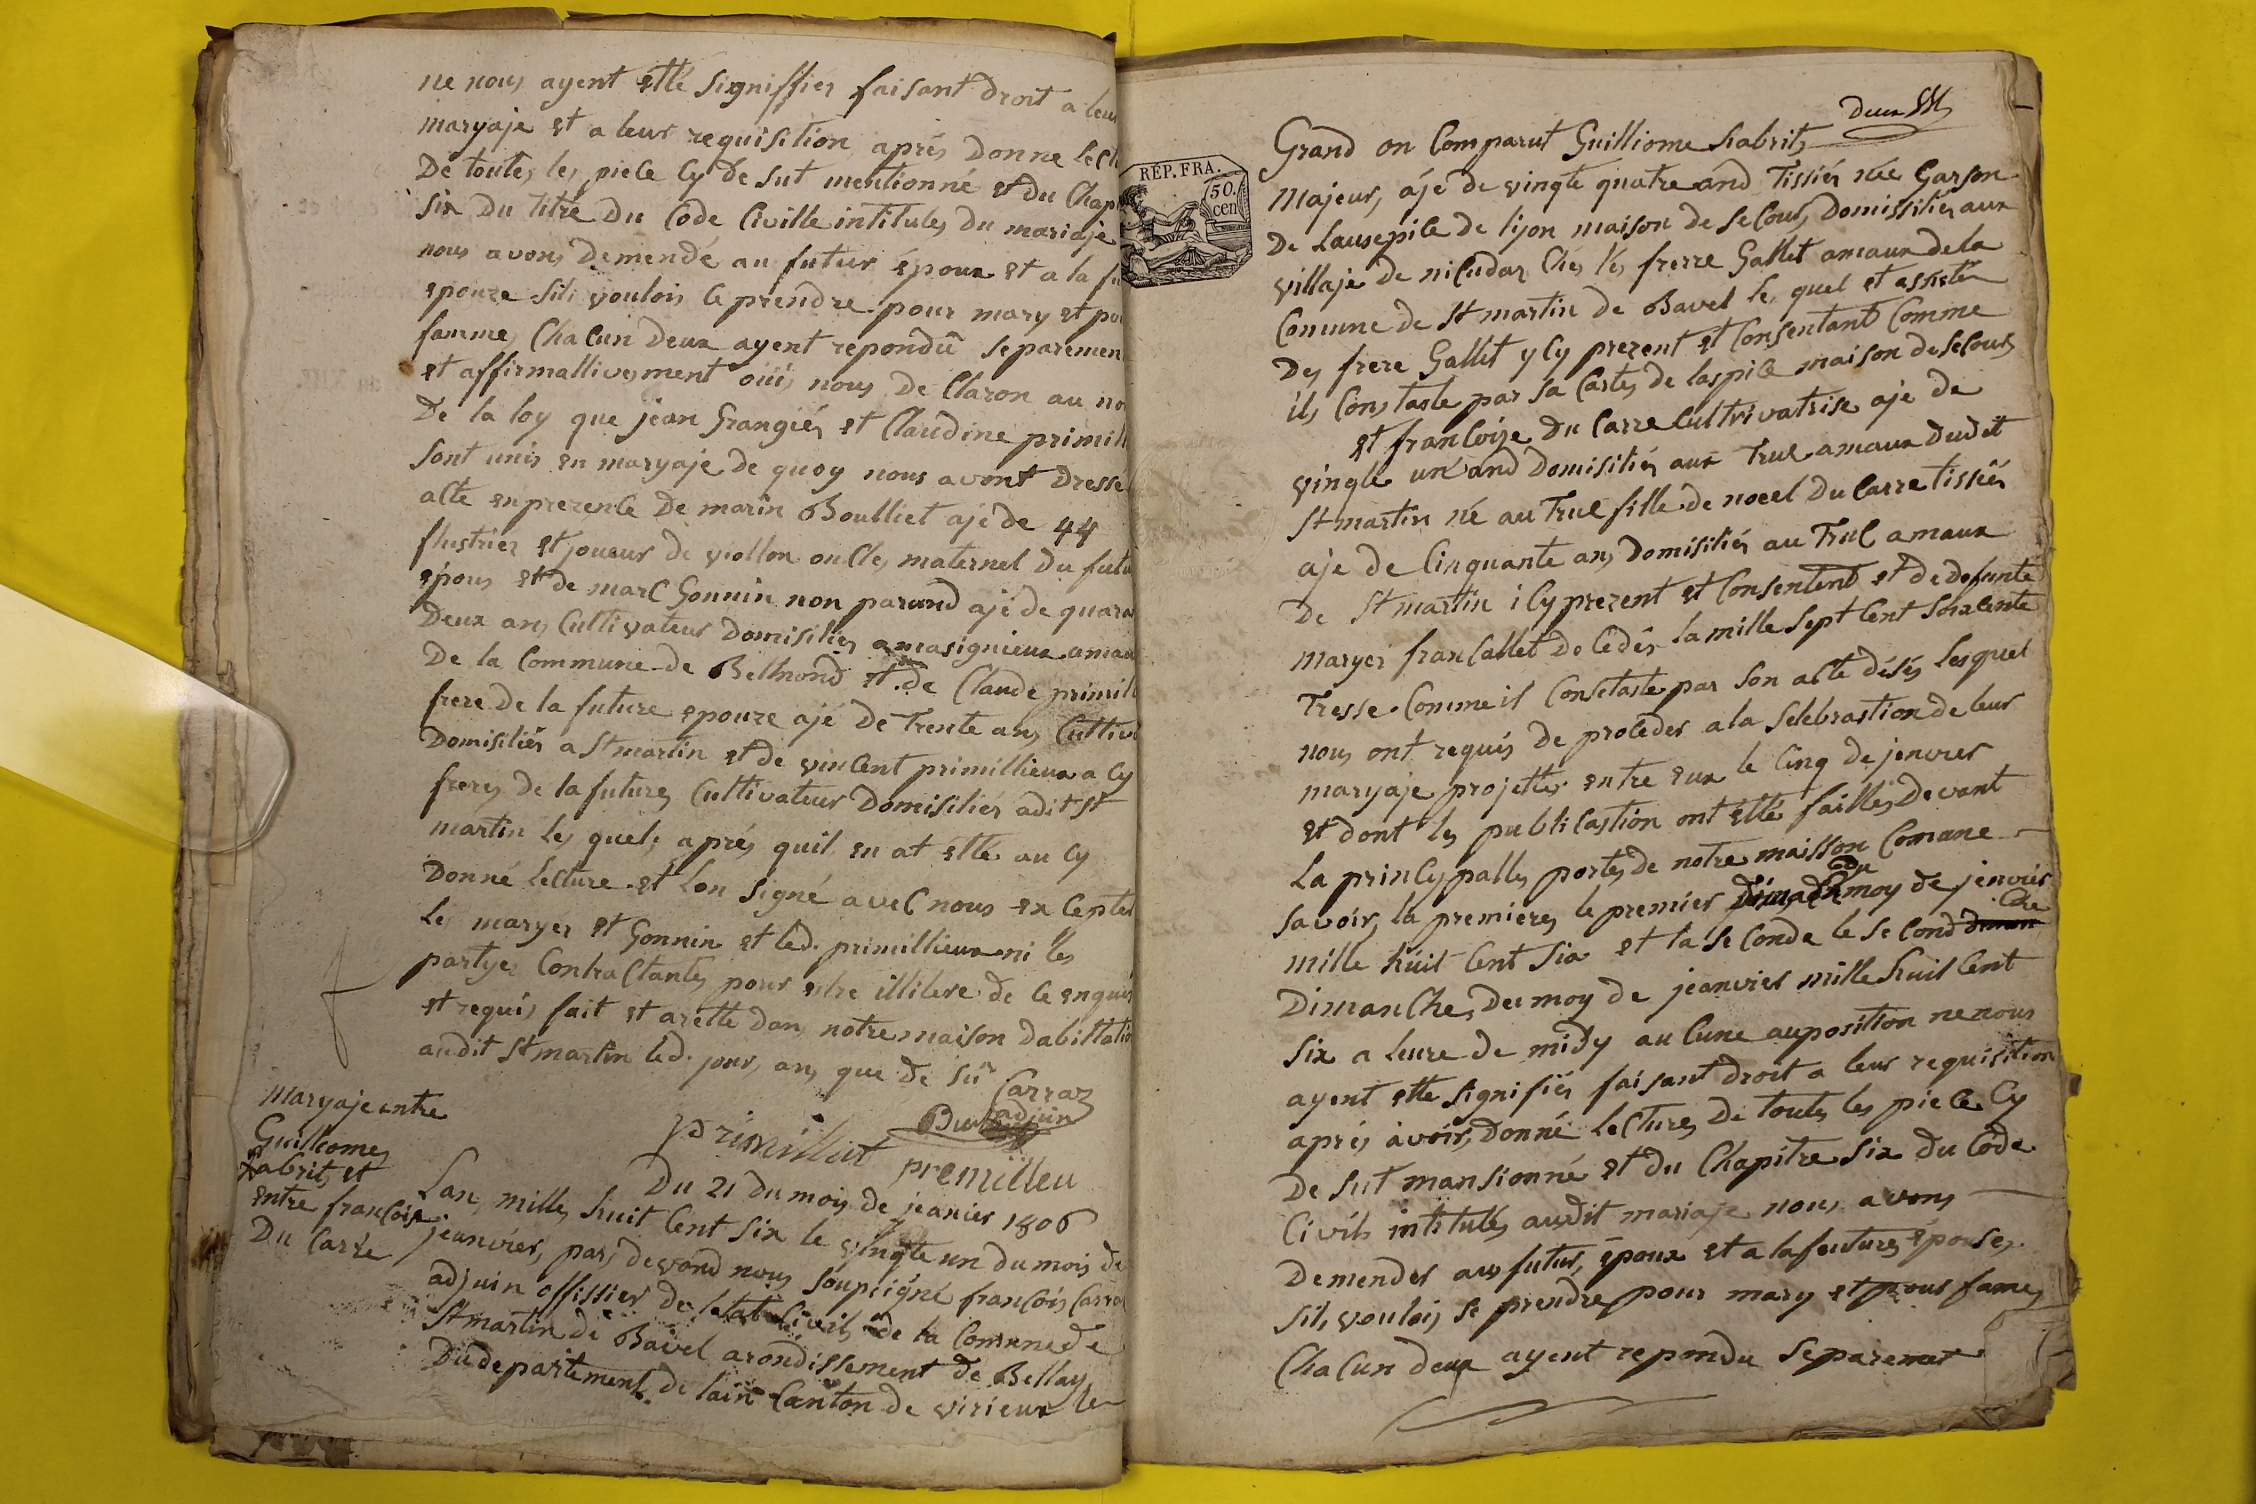 ne nous ayent etté signiffier faisant droit a leur
maryaje et a leur requisition après donne lec
De toutes les piece cy de sut mentionné et du Chap
six Du titre du Code Civille intitules du mariaje
nous avons demendé au futur époux et a la fu
epouze sils voulois ce prendre pour mary et po
famme, Chacun deux ayent repondû separemen
et affirmattivesment oüis nous de Claron au no
De la loy que jean Grangiér et Claudine primill
sont unis en maryaje de quoy nous avont Dressé
acte en prezence De marin Boulliet ajé de 44
flustrier et joueur de viollon oncle maternel du futu
epoux et de marc Gonnin non parand ajé de quara
Deux ans Cultivateur Domisilier amasignieux amau
De la Commune de Belmond et de Claude primill
frere de la future epouze ajé de trente ans Cultiv
Domisiliér a St martin et de vincent primillieux a cy
freres de la future, Cultivateur Domisiliér adit St
martin les quels après quil en at etté au cy
Donné lecture et lon signé avec nous excepter
le maryer et Gonnin et led. primillieux ni les
partyes Contractantes pour estre illitere de ce enquis
et requis fait et aretté dans notre maison dabittatio
audit St martin led. jour, ans que de sur
Carraz
adjuin
primillut
premilleu
maryaje entre
Guilliome
habrits et
entre françoise
Du Carre
Du 21 du mois de jeanier 1806
Lan, mille, huit Cent six le vingte un du mois de
jeanvier, par devand nous soupsigné françois Carra
adjuin offissier de letat Civils de la Comunede
St martin de Bavel arondissement de Bellay
Du departement de lain Canton de virieux le
deux
REP. FRA.
50.
cen
Grand on Comparut Guilliome habrits
Majeur, aje de vingte quatre and Tissiér née Garson
De Lausepice de lijon maison de secour, Domissilier aux
villaje de nicudar Chés les frerre Gallet amaux dela
Comune de St martin de Bavel le quel et assister
Des frere Gallet y cy prezent et Consentant Comme
ils Constaste par sa Cartes de laspice maison de secours
et francoize Du Carre Cultrivatrise aje de
vingte un and Domisiliér aux Truc amaux dudit
St martin né au Truc fille de noeel Du Carre tissiér
aje de Cinquante ans Domisiliér au Truc amaux
De St martin i cy prezent et Consentent et de defunte
maryer francallet Decedér la mille sept Cent soixente
Tresse Comme il Consetaste par son acte désés lesquel
nous ont requis de proceder a la Selebrastion de leur
maryaje projetter entre eux le Cinq de jenvier
et dont les publicastion ont etté failles Devant
La princypalles portes de notre maisson Comune
savoir, la premieres le premier du moy de jenvier
mille huit Cent six et la seconde le second
Dimanche, du moy de jeanvier mille huit Cent
six a leure de midy aucune auposition ne nous
ayent etté signifier faisant droit a leur requisition
après avoir, donné lectures De toutes les piece Cy
De sut mansionné et du Chapitre six du Code
Civils intitulés audit mariaje nous avons
Demender aus futur, époux et a la feutures épouses
sils voulois se prendre pour mary et pour fame,
Chacun deux ayent repondu separemet